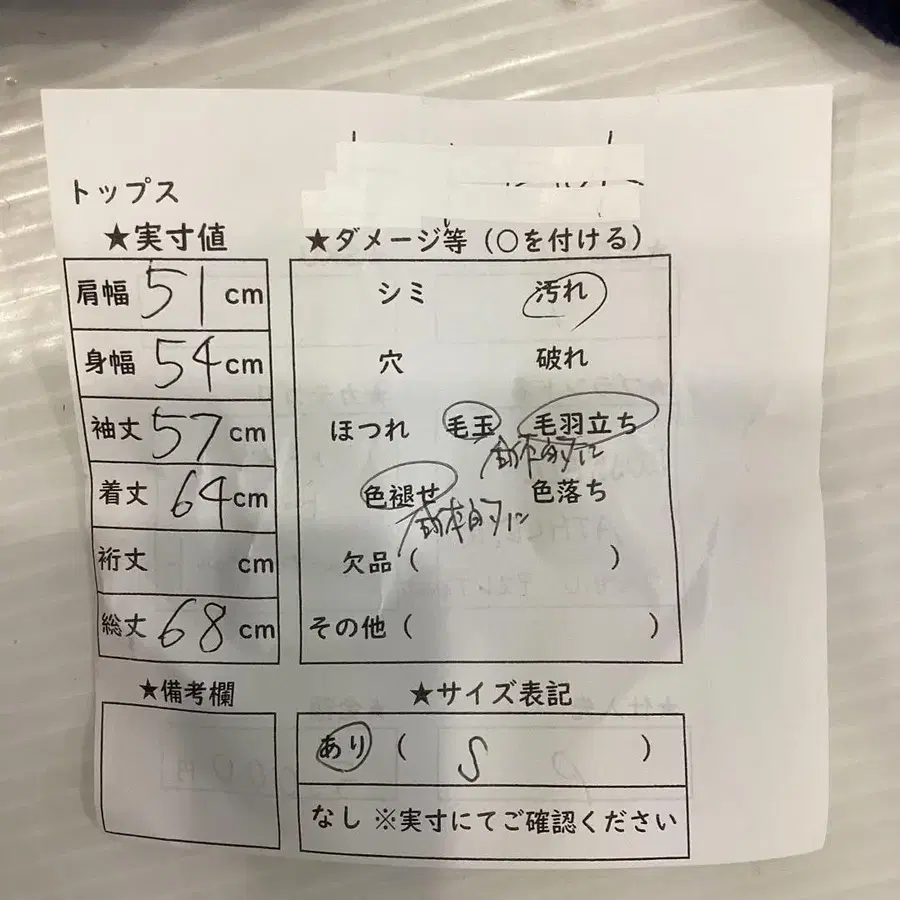 トップス
★実寸値
肩幅 51 cm
身幅 54 cm
袖丈 57 cm
着丈 64 cm
裄丈 cm
総丈 68 cm
★備考欄
★ダメージ等（○を付ける）
シミ 汚れ
穴 破れ
ほつれ 毛玉 毛羽立ち
全体的に
色褪せ 色落ち
全体的に
欠品（ ）
その他（ ）
★サイズ表記
あり（ S ）
なし ※実寸にてご確認ください